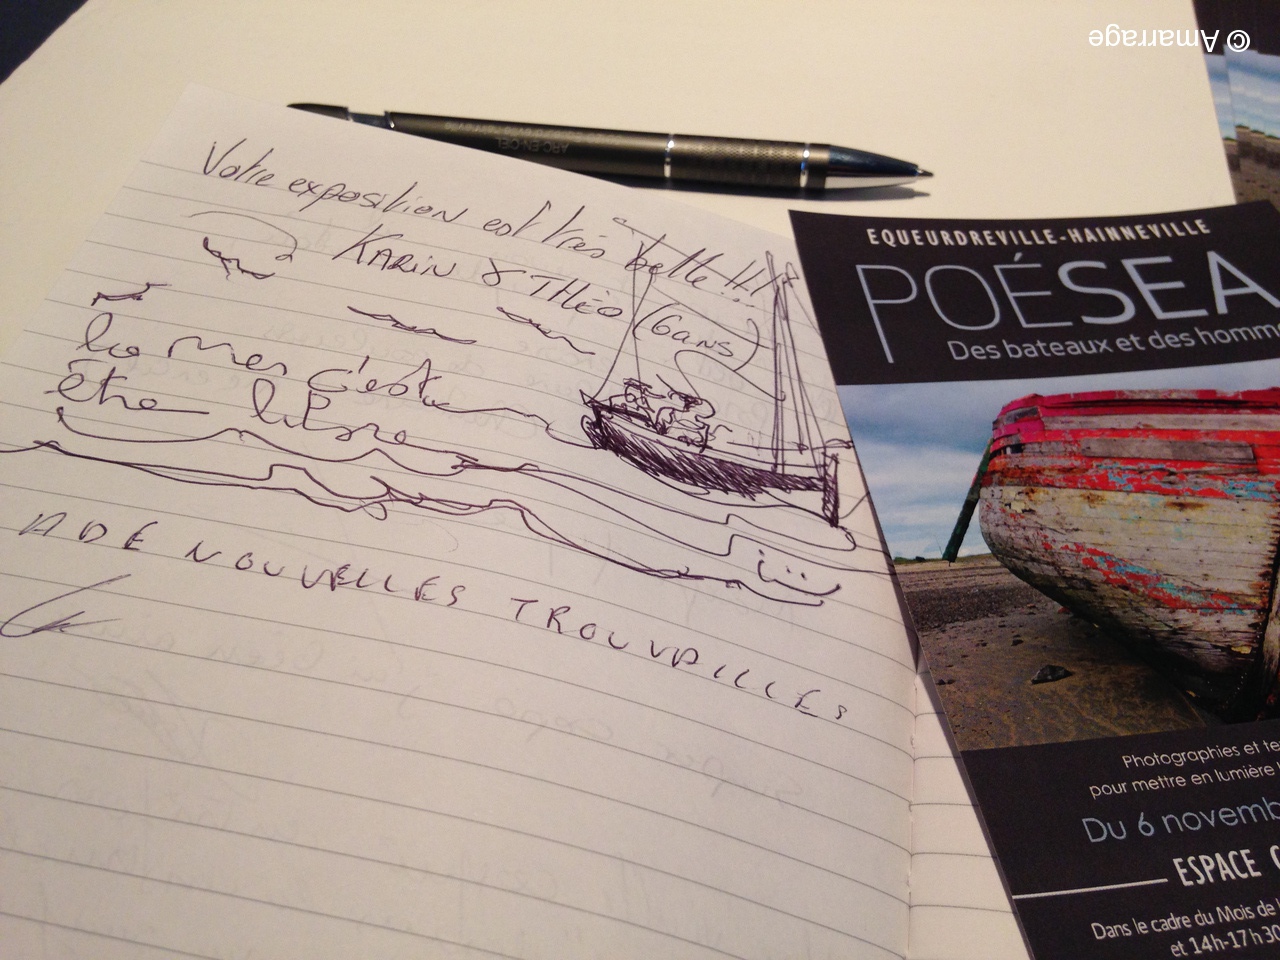 © Amarrage
ARC-EN-CIEL
Votre exposition est très belle !!!
KARIN & THÉO (6 ans)
la mer c'est
être libre
A DE NOUVELLES TROUVAILLES
EQUEURDREVILLE-HAINNEVILLE
POÉSEA
Des bateaux et des homm
Photographies et te
pour mettre en lumière
Du 6 novemb
ESPACE
Dans le cadre du Mois de
et 14h-17h30